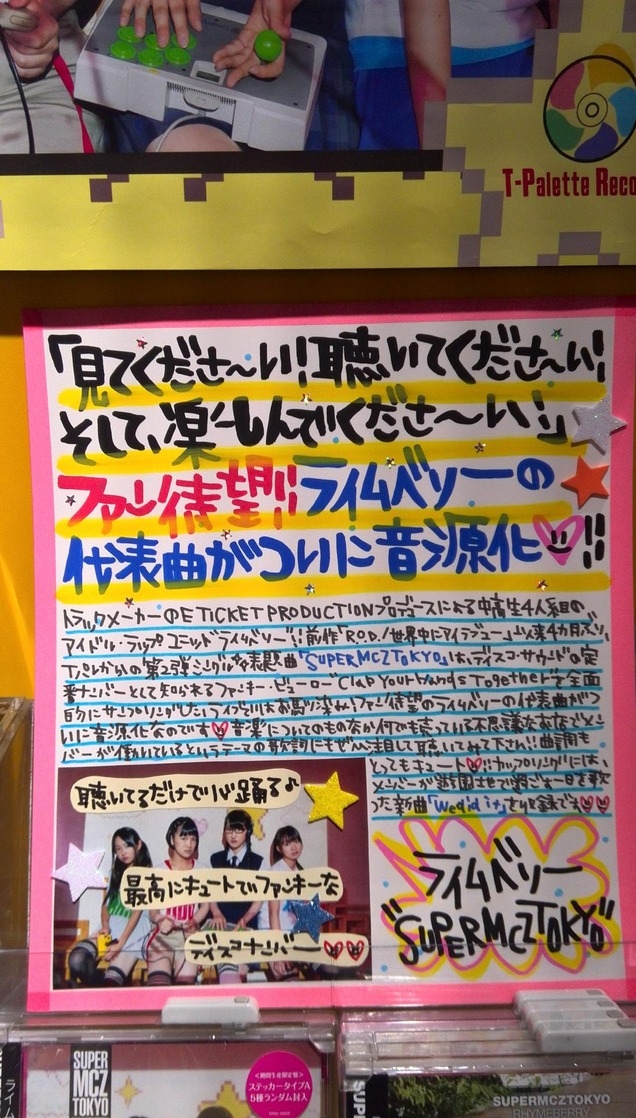 T-Palette Reco
「見てくださ〜い!!聴いてくださ〜い!
そして、楽しんでくださ〜い!」
ファン待望!!ライムベリーの
代表曲がついに音源化!!
トラックメーカーのE TICKET PRODUCTIONプロデュースによる中高生4人組の
アイドル・ラップユニット「ライムベリー」!前作「R.O.D./世界中にアイラブユー」以来4カ月ぶり、
Tパレからの第2弾シングル表題曲「SUPERMCZTOKYO」は、ディスコ・サウンドの定
番ナンバーとして知られるファンキー・ビューローClap Your Hands Togetherを全面
的にサンプリングした、ライブではお馴染み!ファン待望のライムベリーの代表曲がつ
いに音源化なのです 音楽についてのものなら何でも売っている不思議なお店でメン
バーが働いているというテーマの歌詞にもぜひ注目して聴いてみて下さい!!曲調も
とってもキュート!!カップリングには、
メンバーが遊園地で過ごす一日を歌
った新曲「We did it」を収録です
聴いてるだけで心踊る♪
最高にキュートでファンキーな
ディスコナンバー
ライムベリー
"SUPERMCZTOKYO"
SUPER
MCZ
TOKYO
ライム
<期間生産限定盤>
ステッカータイプA
5種ランダム封入
SUP
SUPERMCZTOKYO
RHYMEBERRY